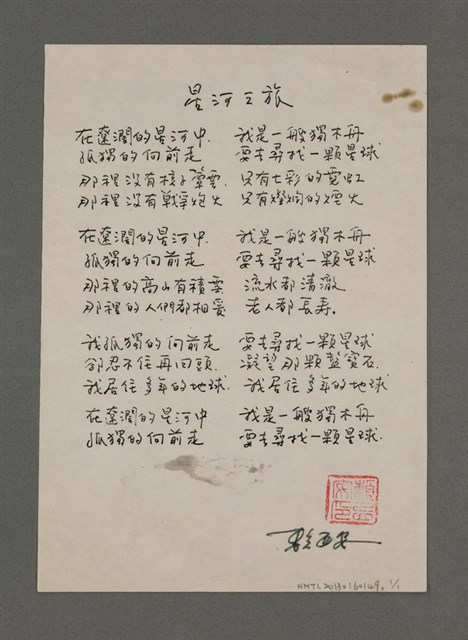 星河之旅
在遼濶的星河中 我是一艘獨木舟
孤獨的向前走 要去尋找一顆星球
那裡沒有核子彈雲 只有七彩的霓虹
那裡沒有戰爭炮火 只有燦爛的煙火
在遼濶的星河中 我是一艘獨木舟
孤獨的向前走 要去尋找一顆星球
那裡的高山有積雪 流水都清澈
那裡的人們都相愛 老人都長寿。
我孤獨的向前走 要去尋找一顆星球
卻忍不住再回頭 凝望那顆藍寶石
我居住多年的地球 我居住多年的地球
在遼濶的星河中 我是一艘獨木舟
孤獨的向前走 要去尋找一顆星球
NMTL20130160149. 1/1